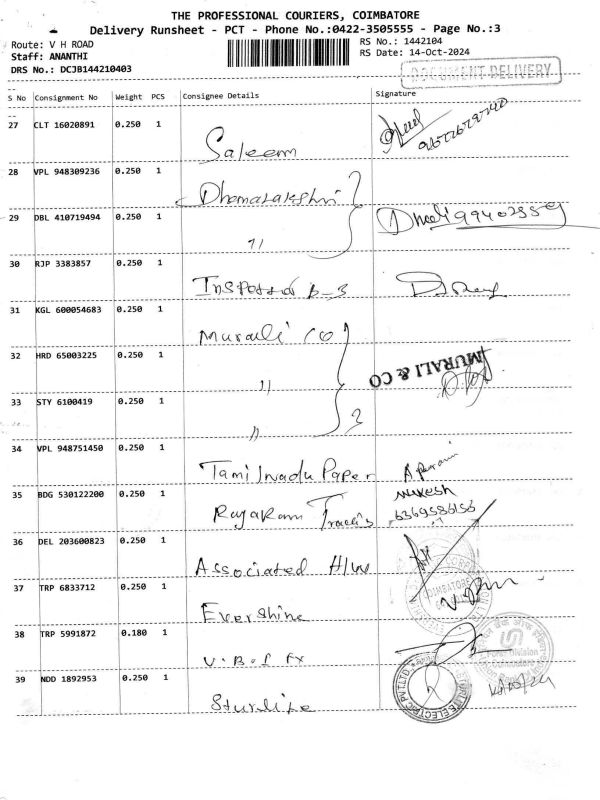 THE PROFESSIONAL COURIERS, COIMBATORE
Delivery Runsheet - PCT - Phone No.:0422-3505555 - Page No.:3
Route: V H ROAD
RS No.: 1442104
Staff: ANANTHI
RS Date: 14-Oct-2024
DRS No.: DCJB144210403
DOCUMENT DELIVERY
S No Consignment No Weight PCS Consignee Details Signature
27 CLT 16020891 0.250 1 Saleem
28 VPL 948309236 0.250 1
29 DBL 410719494 0.250 1 11
30 RJP 3383857 0.250 1 Inspector B-3
31 KGL 600054683 0.250 1 Murali Co
32 HRD 65003225 0.250 1 11
MURALI & CO
33 STY 6100419 0.250 1 11
34 VPL 948751450 0.250 1 Tamilnadu Paper
35 BDG 530122200 0.250 1 Rajaram Mukesh
36 DEL 203600823 0.250 1 Associated H/W
37 TRP 6833712 0.250 1 Evershine
38 TRP 5991872 0.180 1 U.B.I FX
39 NDD 1892953 0.250 1